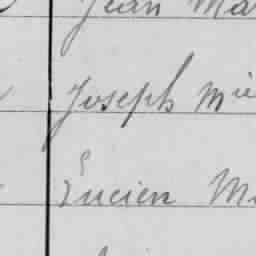 Jean Ma
Joseph Mie
Lucien M